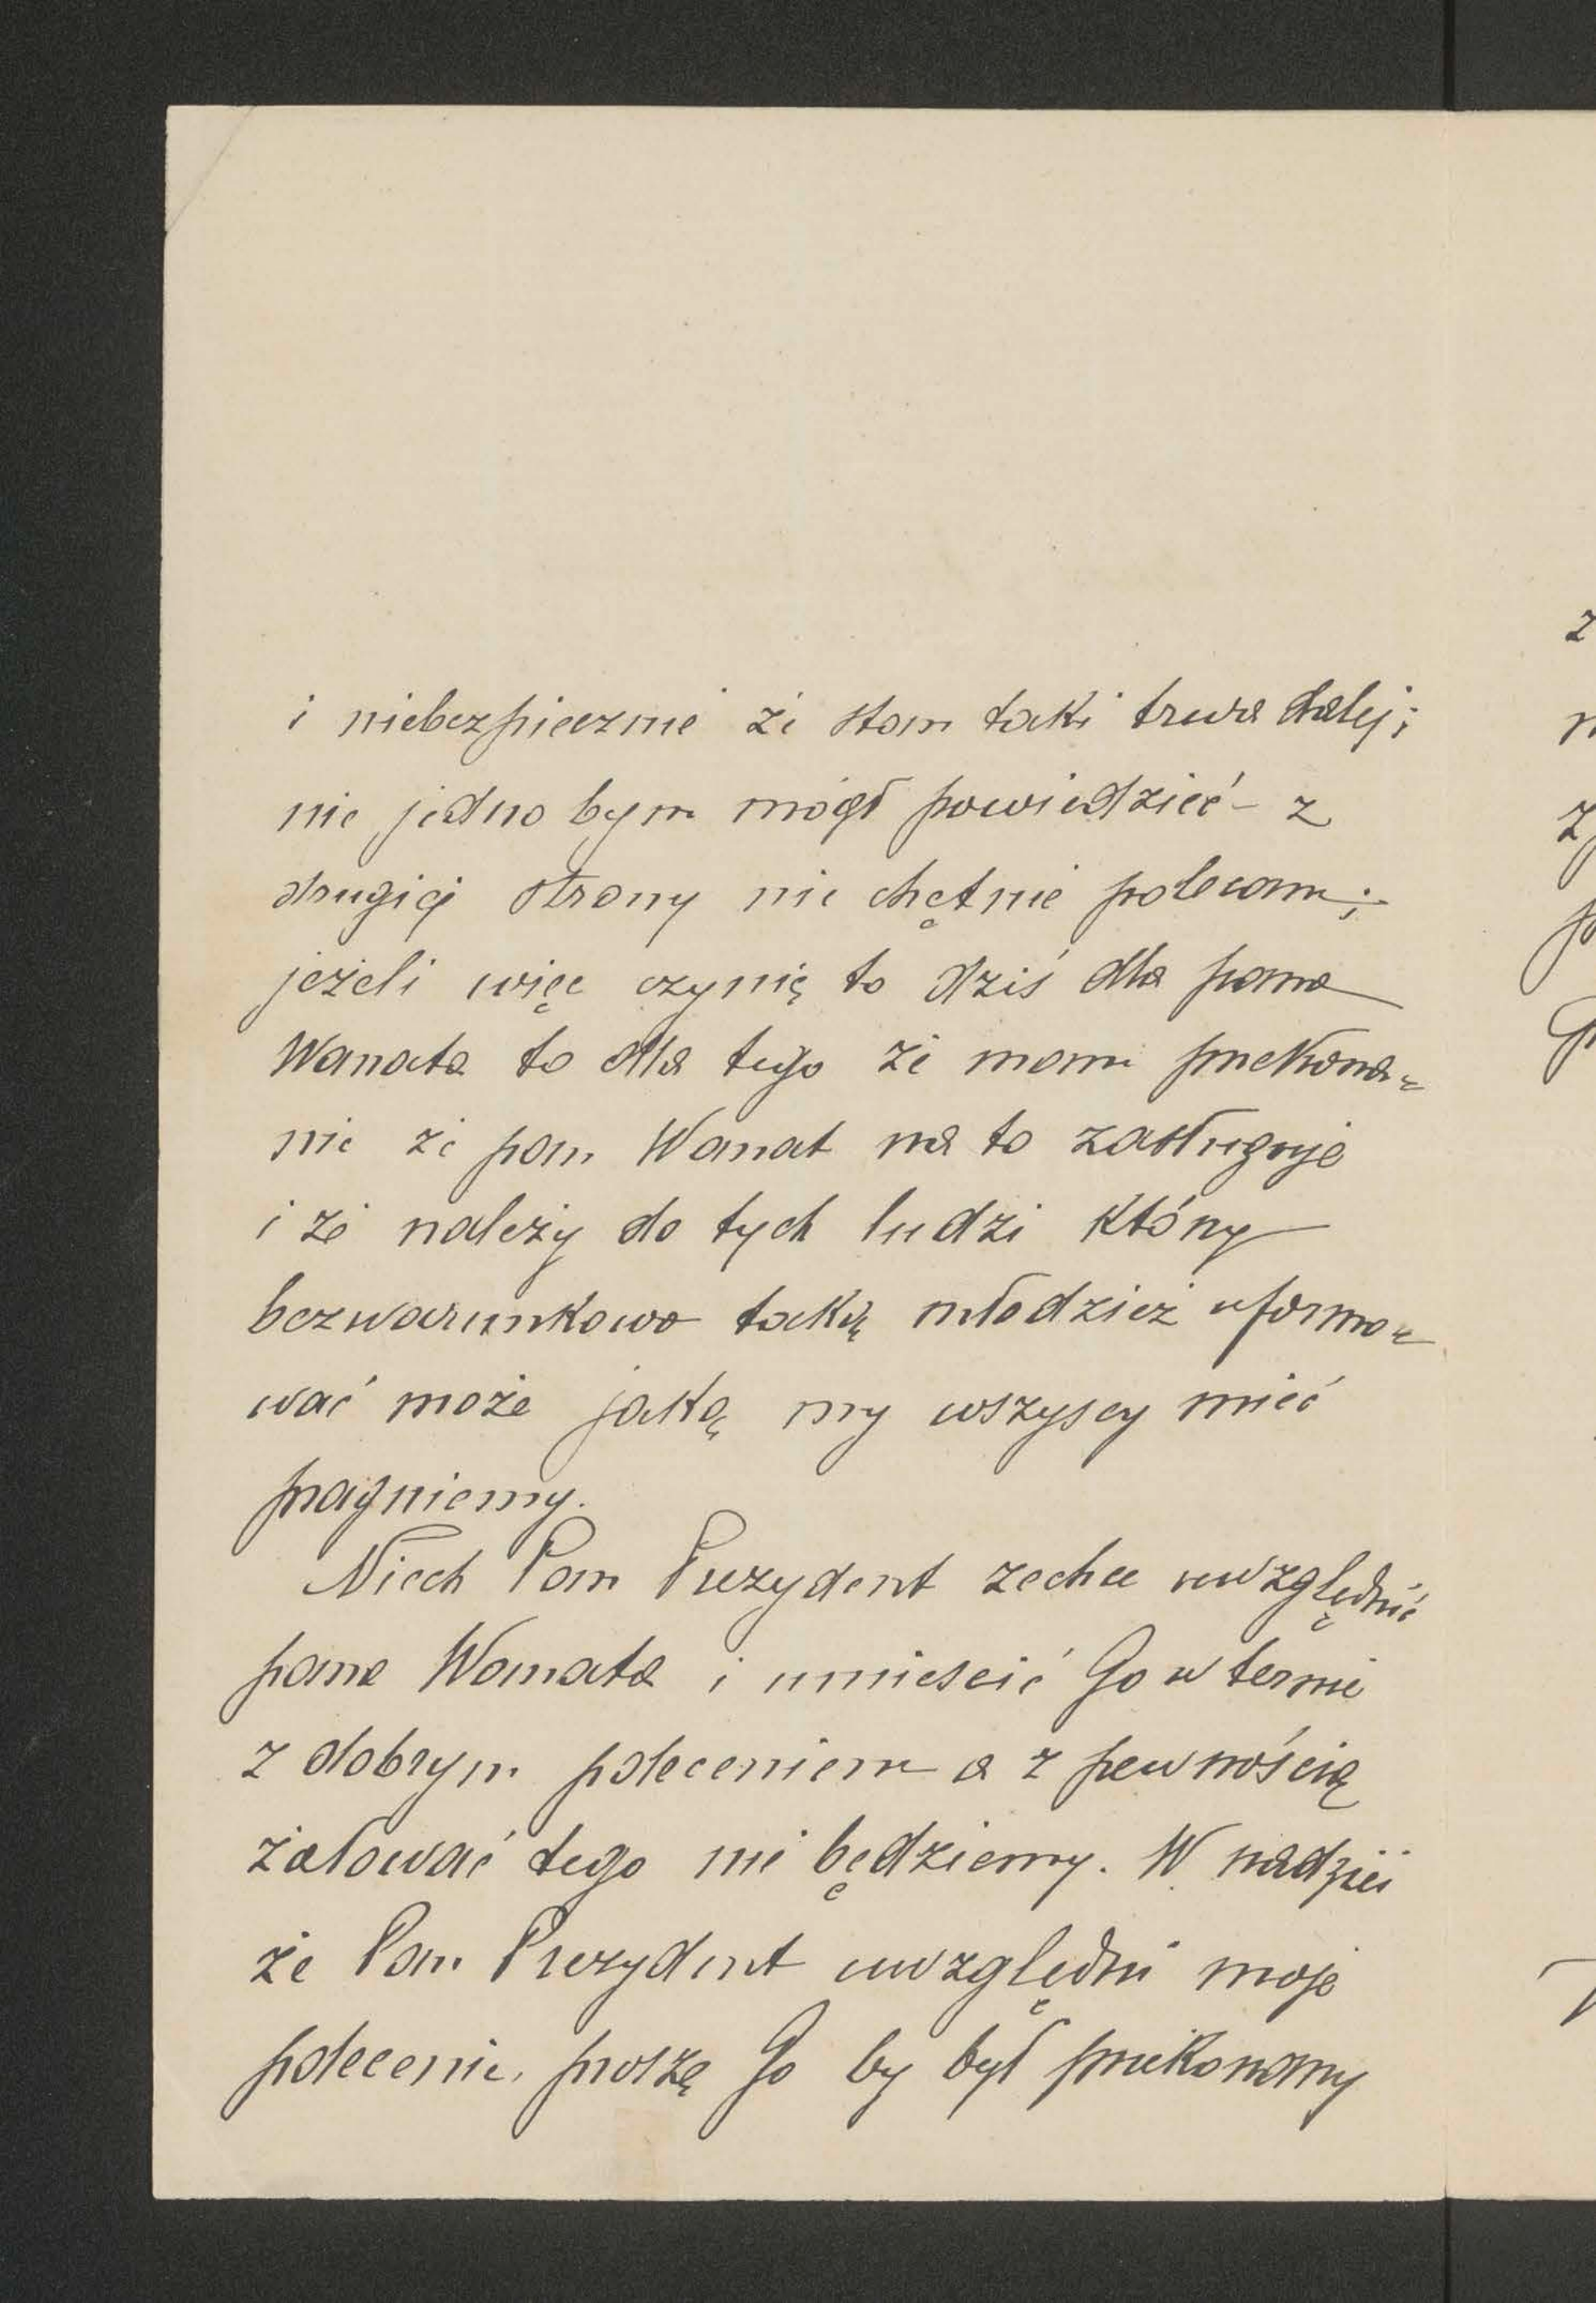 i niebezpiecznie że stan taki trwa dalej;
nie jedno bym mógł powiedzieć – z
drugiej strony nie chętnie polecam;
jeżeli więc czynię to dziś dla pana
Wanata to dla tego że mam przekona=
nie że pan Wanat na to zasługuje
i że należy do tych ludzi który
bezwarunkowo taką młodzież uformo=
wać może jaką my wszyscy mieć
pragniemy.
Niech Pan Prezydent zechce uwzględnić
pana Wanata i umieścić Go w ternie
z dobrym poleceniem a z pewnością
żałować tego nie będziemy. W nadziei
że Pan Prezydent uwzględni moje
polecenie, proszę Go by był przekonany